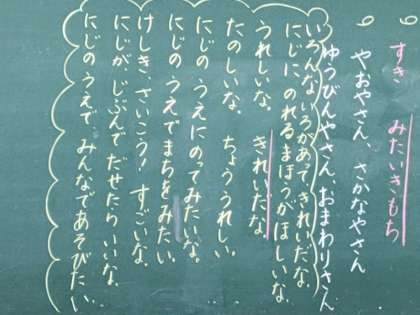 すき みたいきもち
やおやさん、さかなやさん
ゆうびんやさん、おまわりさん
いろんないろがあって、きれいだな。
にじに、のれるまほうがほしいな。
うれしいな。 きれいだな。
たのしいな。 ちょううれしい。
にじの うえにのってみたいな。
にじの うえでまちをみたい。
けしき、さいこう! すごいな。
にじが、じぶんでだせたらいいな。
にじのうえで みんなであそびたい。